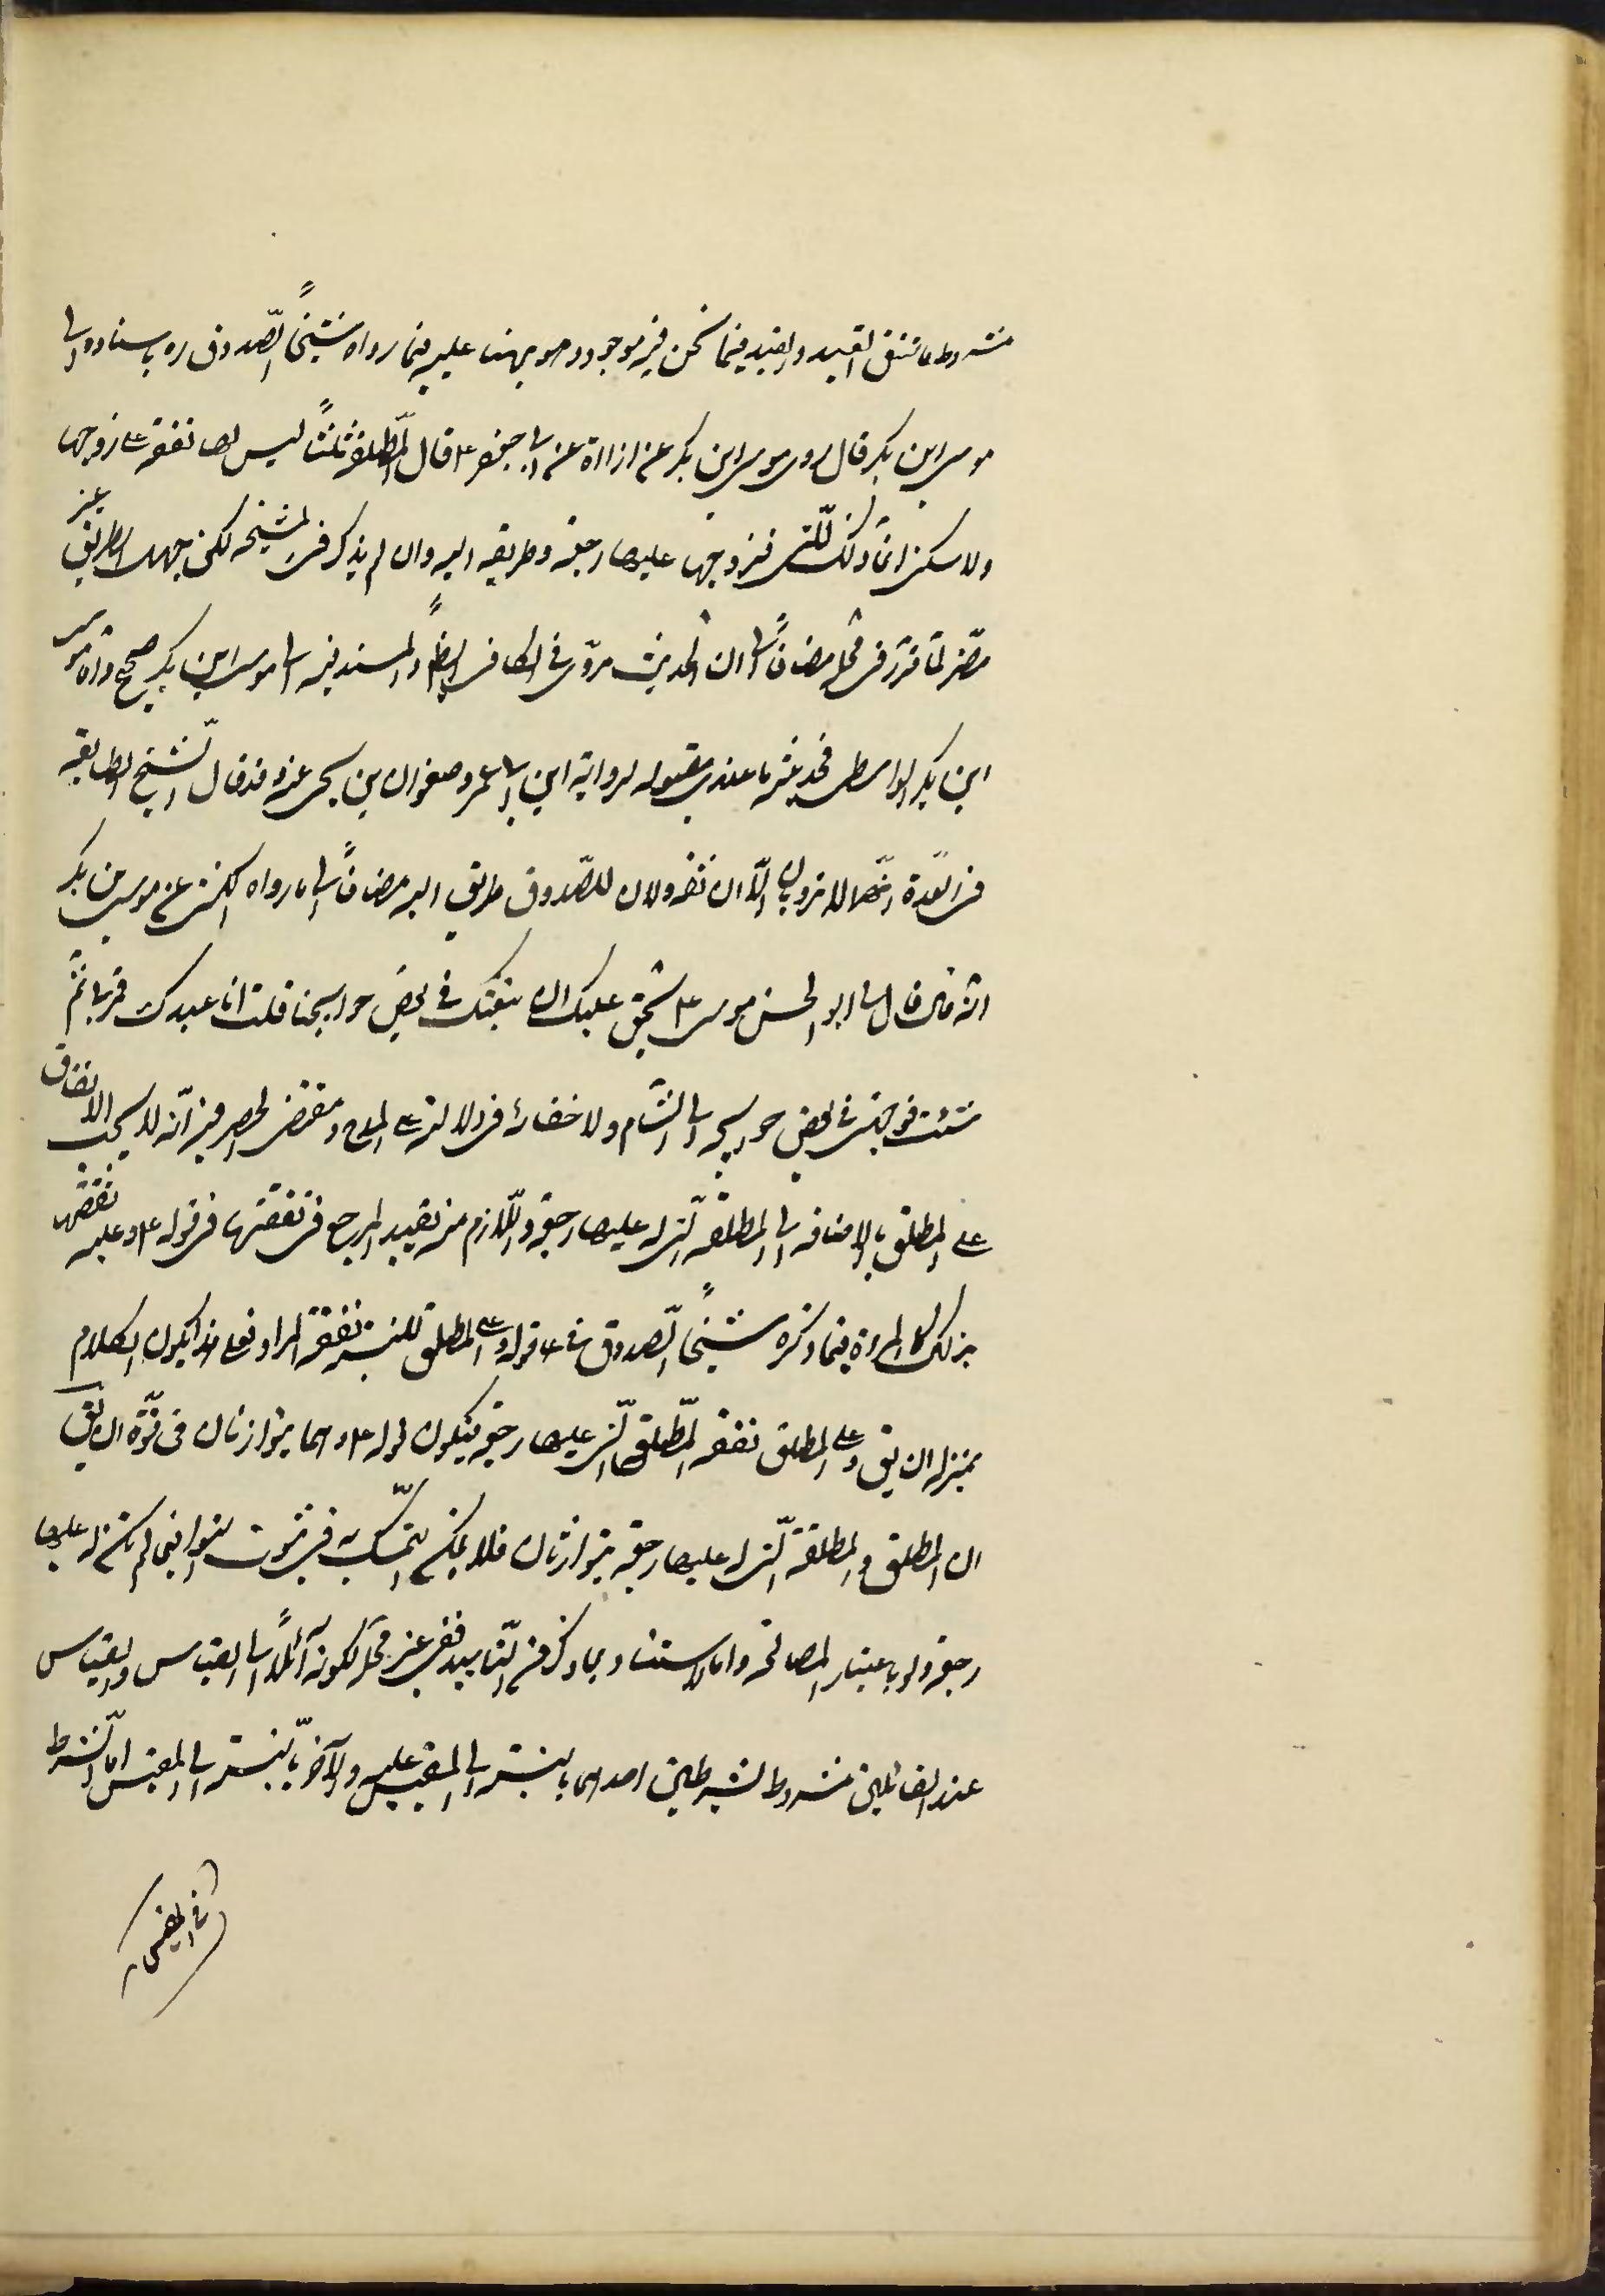 مشروط بانتفاء القيد والقيد فيما نحن فيه موجود وهو يهنا عليه فيما رواه شيخنا الصدوق ره باسناده الى
موسى ابن بكر قال روى موسى ابن بكر عن زرارة عن ابى جعفر ع قال المطلقة ثلثاً ليس لها نفقة على زوجها
ولا سكنى انما ذلك للتى لزوجها عليها رجعة وطريقه اليه وان لم يذكر فى المشيخه لكن جهل الطريق غير
مضر لما قرر فى محله مضافاً الى ان الحديث مروى فى الكافى ايضاً والسند فيه الى موسى ابن بكر صحيح واما موسى
ابن بكر الواسطى فحديثه ما عندى مقبوله لرواية ابن ابى عمير وصفوان بن يحيى عنه وقد قال الشيخ الطايفه
فى العدة انهما لا يرويان الا عن ثقه ولان للصدوق طريق اليه مضافاً الى ما رواه الكشى عن موسى بن بكر
انه قال قال لى ابو الحسن موسى ع يخف عليك ان نبعثك فى بعض حوايجنا قلت انا عبدك فمرنى بما
شئت فوجهنى فى بعض حوايجه الى الشام ولا خفاء فى دلالته على المدح ومقتضى الحصر فيه انه لا يجب الانفاق
على المطلق بالاضافه الى المطلقه التى له عليها رجعة واللازم من تقييد المرجع فى نفقتها فى قوله ع وعليه نفقتها
بذلك كالمرءة فيما ذكره شيخنا الصدوق فى قوله وعلى المطلق للسنة نفقة المرءة فعلى هذا يكون الكلام
بمنزله ان يق وعلى المطلق نفقة المطلقه التى عليها رجعة فيكون قوله ع وهما يتوارثان فى قوة ان يق
ان المطلق والمطلقة التى له عليها رجعة يتوارثان فلا يمكن التمسك به فى ثبوت التوارث فيما لم يكن له عليها
رجعة ولو باعتبار المصالحه واما الاستناد بما ذكر من التاييد ففى غير محله لكونه آئلاً الى القياس والقياس
عند القائلين مشروط بشرطين احدهما بالنسبة الى المقيس عليه والآخر بالنسبة الى المقيس اما الشرط
فى المقيس